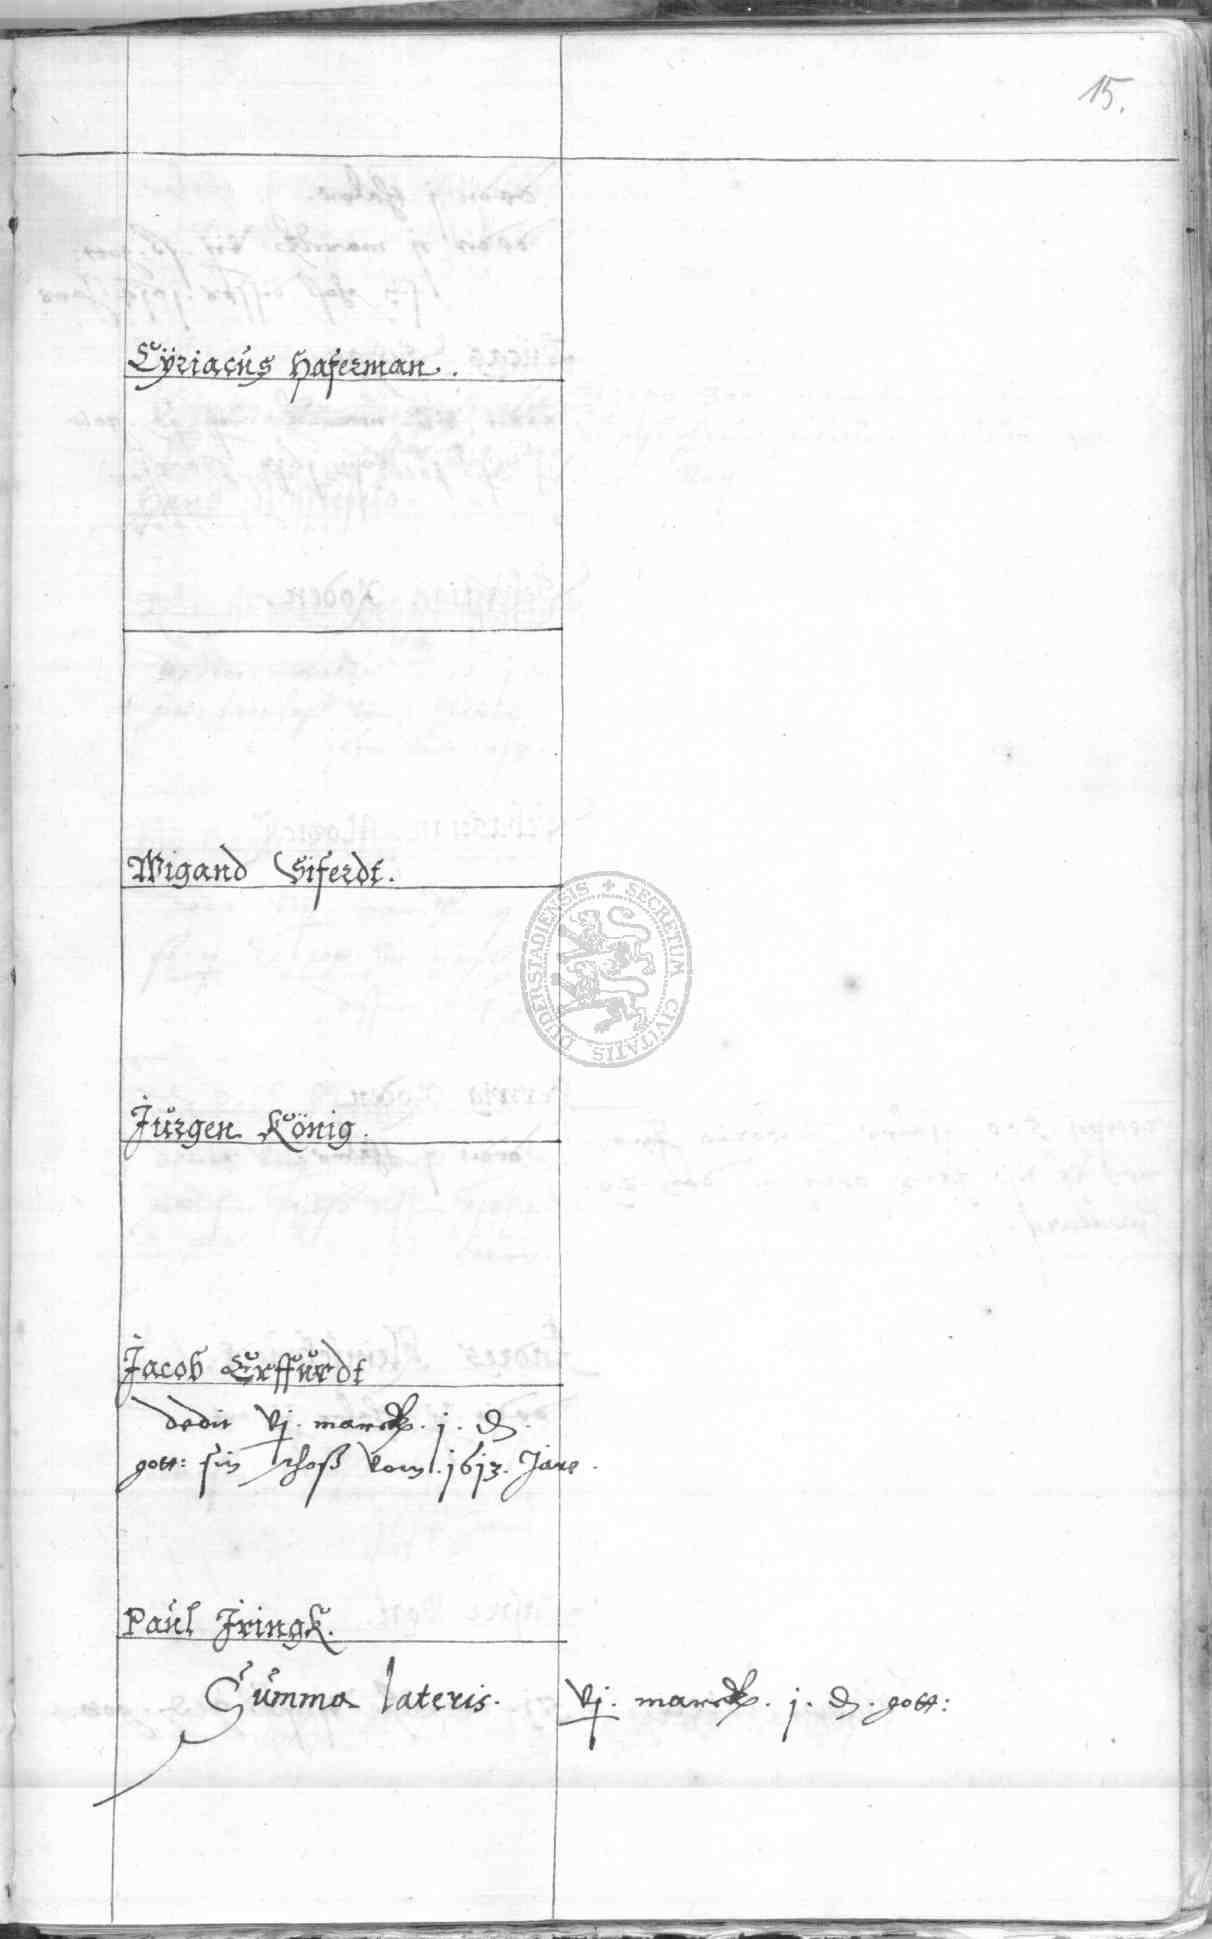 15.
Cÿriacus Haferman.
Wigand Siferdt.
Jürgen König.
Jacob Erffurdt
dedit vj. marck. j. d.
gott: sin schoß vom .1613. Jare.
Paul Iringk.
Summa lateris. vj. marck. j. d. gott:
DUDERSTADIENSIS + SECRETUM CIVITATIS